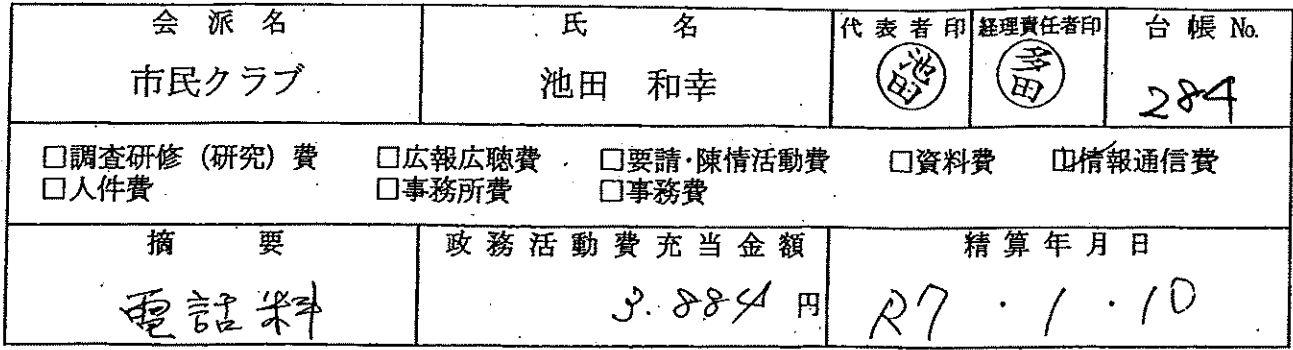 会派名 氏名 代表者印 経理責任者印 台帳No.
市民クラブ 池田 和幸 池田 多田 284
□調査研修(研究)費 □広報広聴費 □要請・陳情活動費 □資料費 ☑情報通信費
□人件費 □事務所費 □事務費
摘要 政務活動費充当金額 精算年月日
電話料 3.884円 R7・1・10